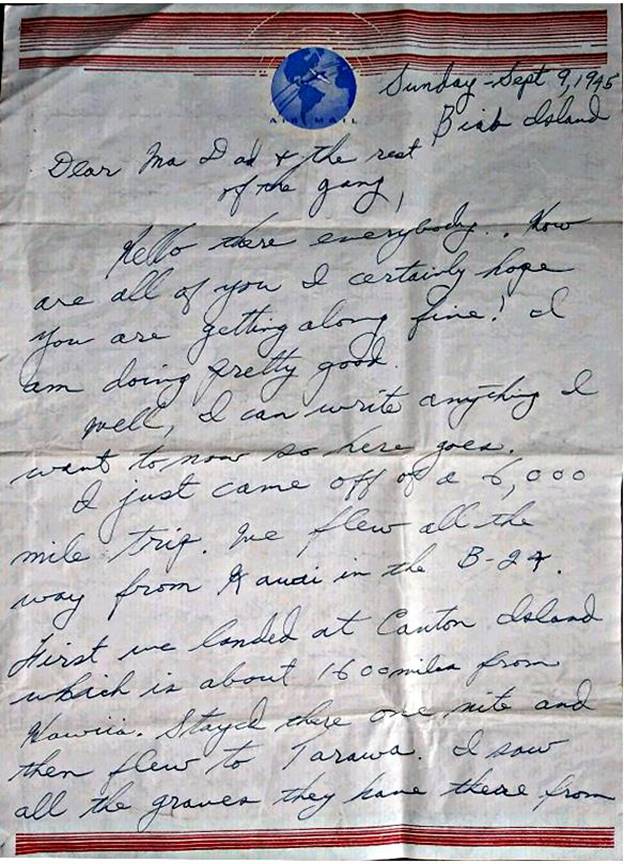 AIR MAIL
Sunday - Sept 9, 1945
Biak Island
Dear Ma Dad & the rest
of the gang,
Hello there everybody.. How
are all of you I certainly hope
you are getting along fine! I
am doing pretty good.
Well, I can write anything I
want to now so here goes.
I just came off of a 6,000
mile trip. We flew all the
way from Kauai in the B-24.
First we landed at Canton Island
which is about 1600 miles from
Hawiia. Stayed there one nite and
then flew to Tarawa. I saw
all the graves they have there from